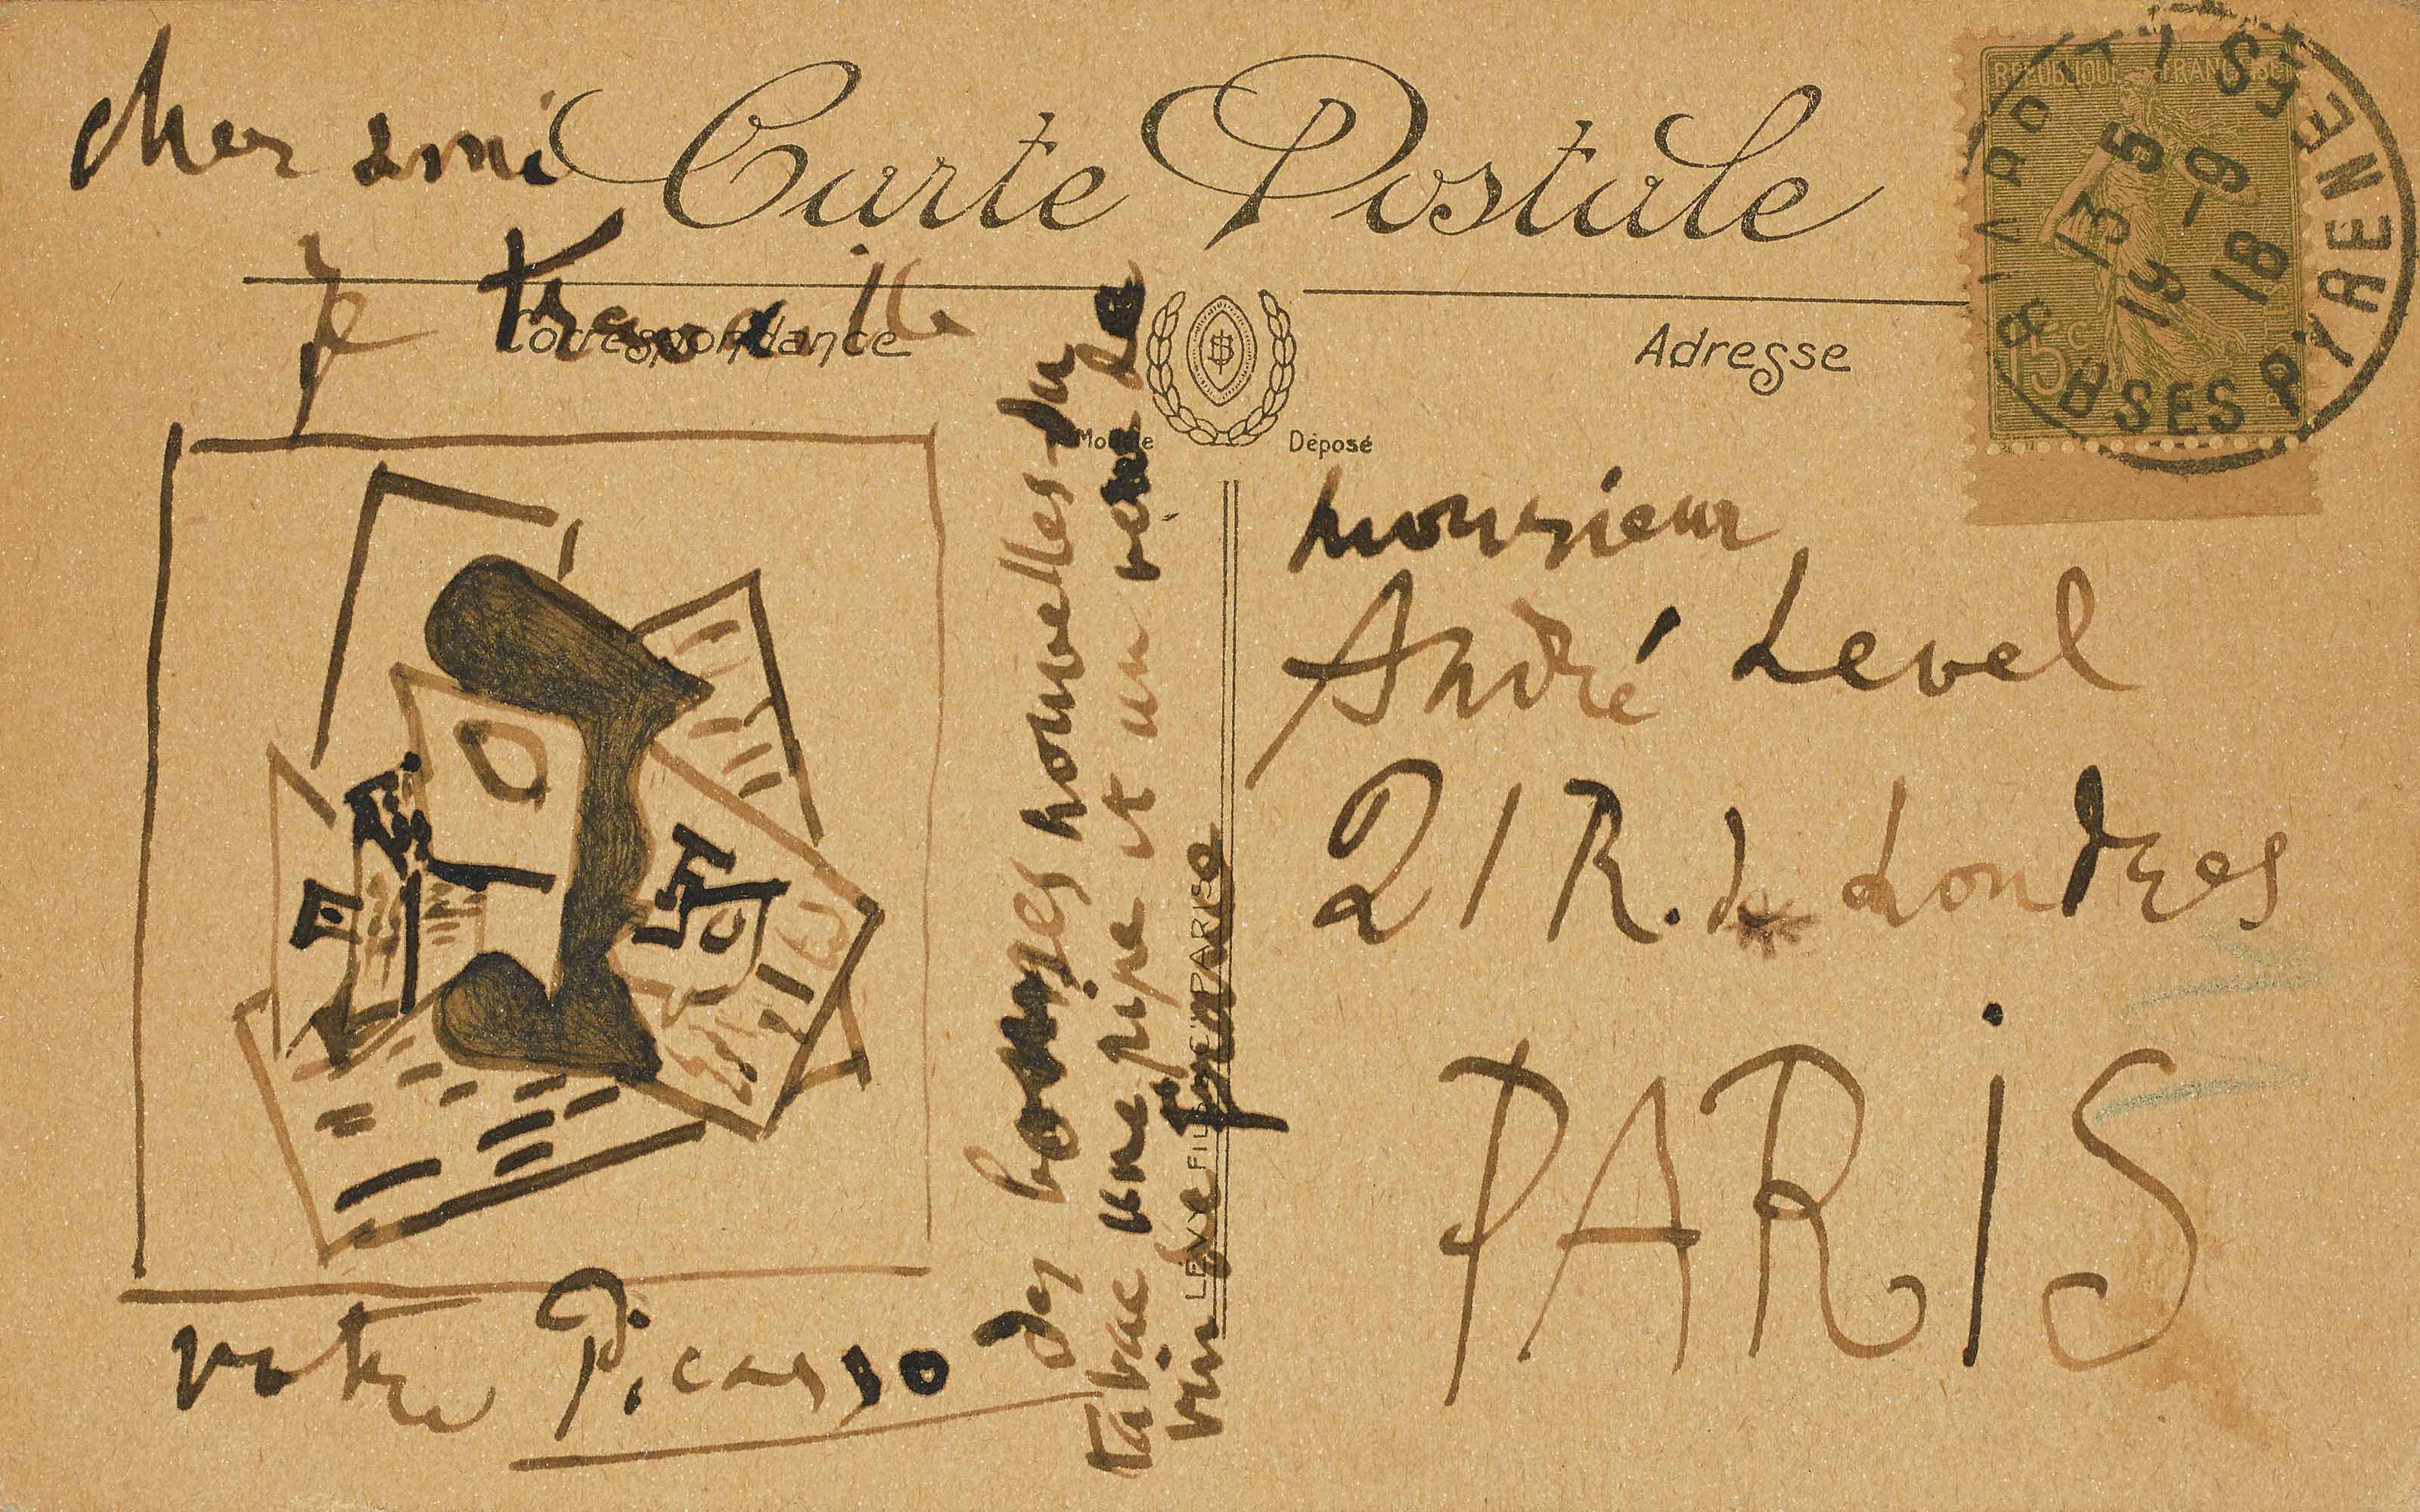 cher ami
Carte Postale
je travaille
Correspondance
Adresse
Modèle Déposé
REPUBLIQUE FRANÇAISE
15c
BIARRITZ BSES PYRENEES
13 5
19 -9
18
monsieur
André Level
21 R. de Londres
PARiS
des bonnes nouvelles du
tabac une pipe et un verre de
vin
votre Picasso